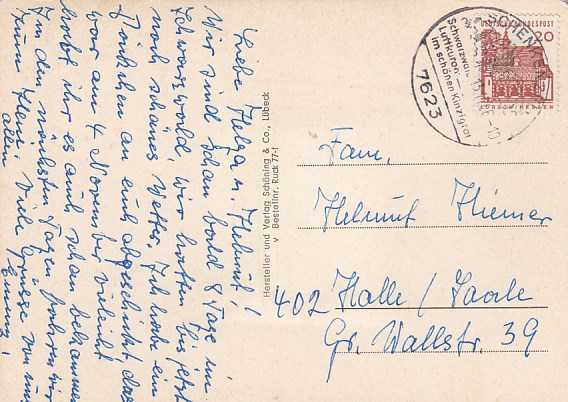 Liebe Helga u. Helmut!
Wir sind schon bald 8 Tage im
Schwarzwald, wir hatten bis jetzt
noch schönes Wetter. Ich habe ein
Päckchen an euch abgeschickt, das
war am 4 November vieleicht
habt ihr es auch schon bekommen
In den nächsten Tagen fahren wir
zum Heim. Viele Grüsse von uns
allen
Hersteller und Verlag Schöning & Co., Lübeck
v Bestellnr. Ruck 77-1
7623
Schwarzwald
Luftkurort
im schönen Kinzigtal
DEUTSCHE BUNDESPOST
20
LORSCH/HESSEN
Fam.
Helmut Hiemer
402 Halle/Saale
Gr. Wallstr. 39